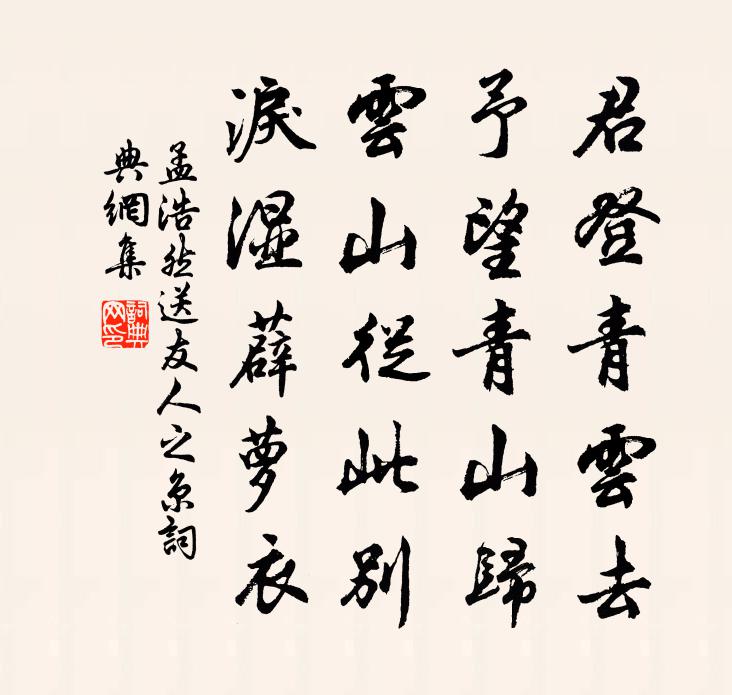 君登青雲去
予望青山歸
雲山從此別
淚湿薜萝衣
孟浩然送友人之京詞
典網集
詞典
网印